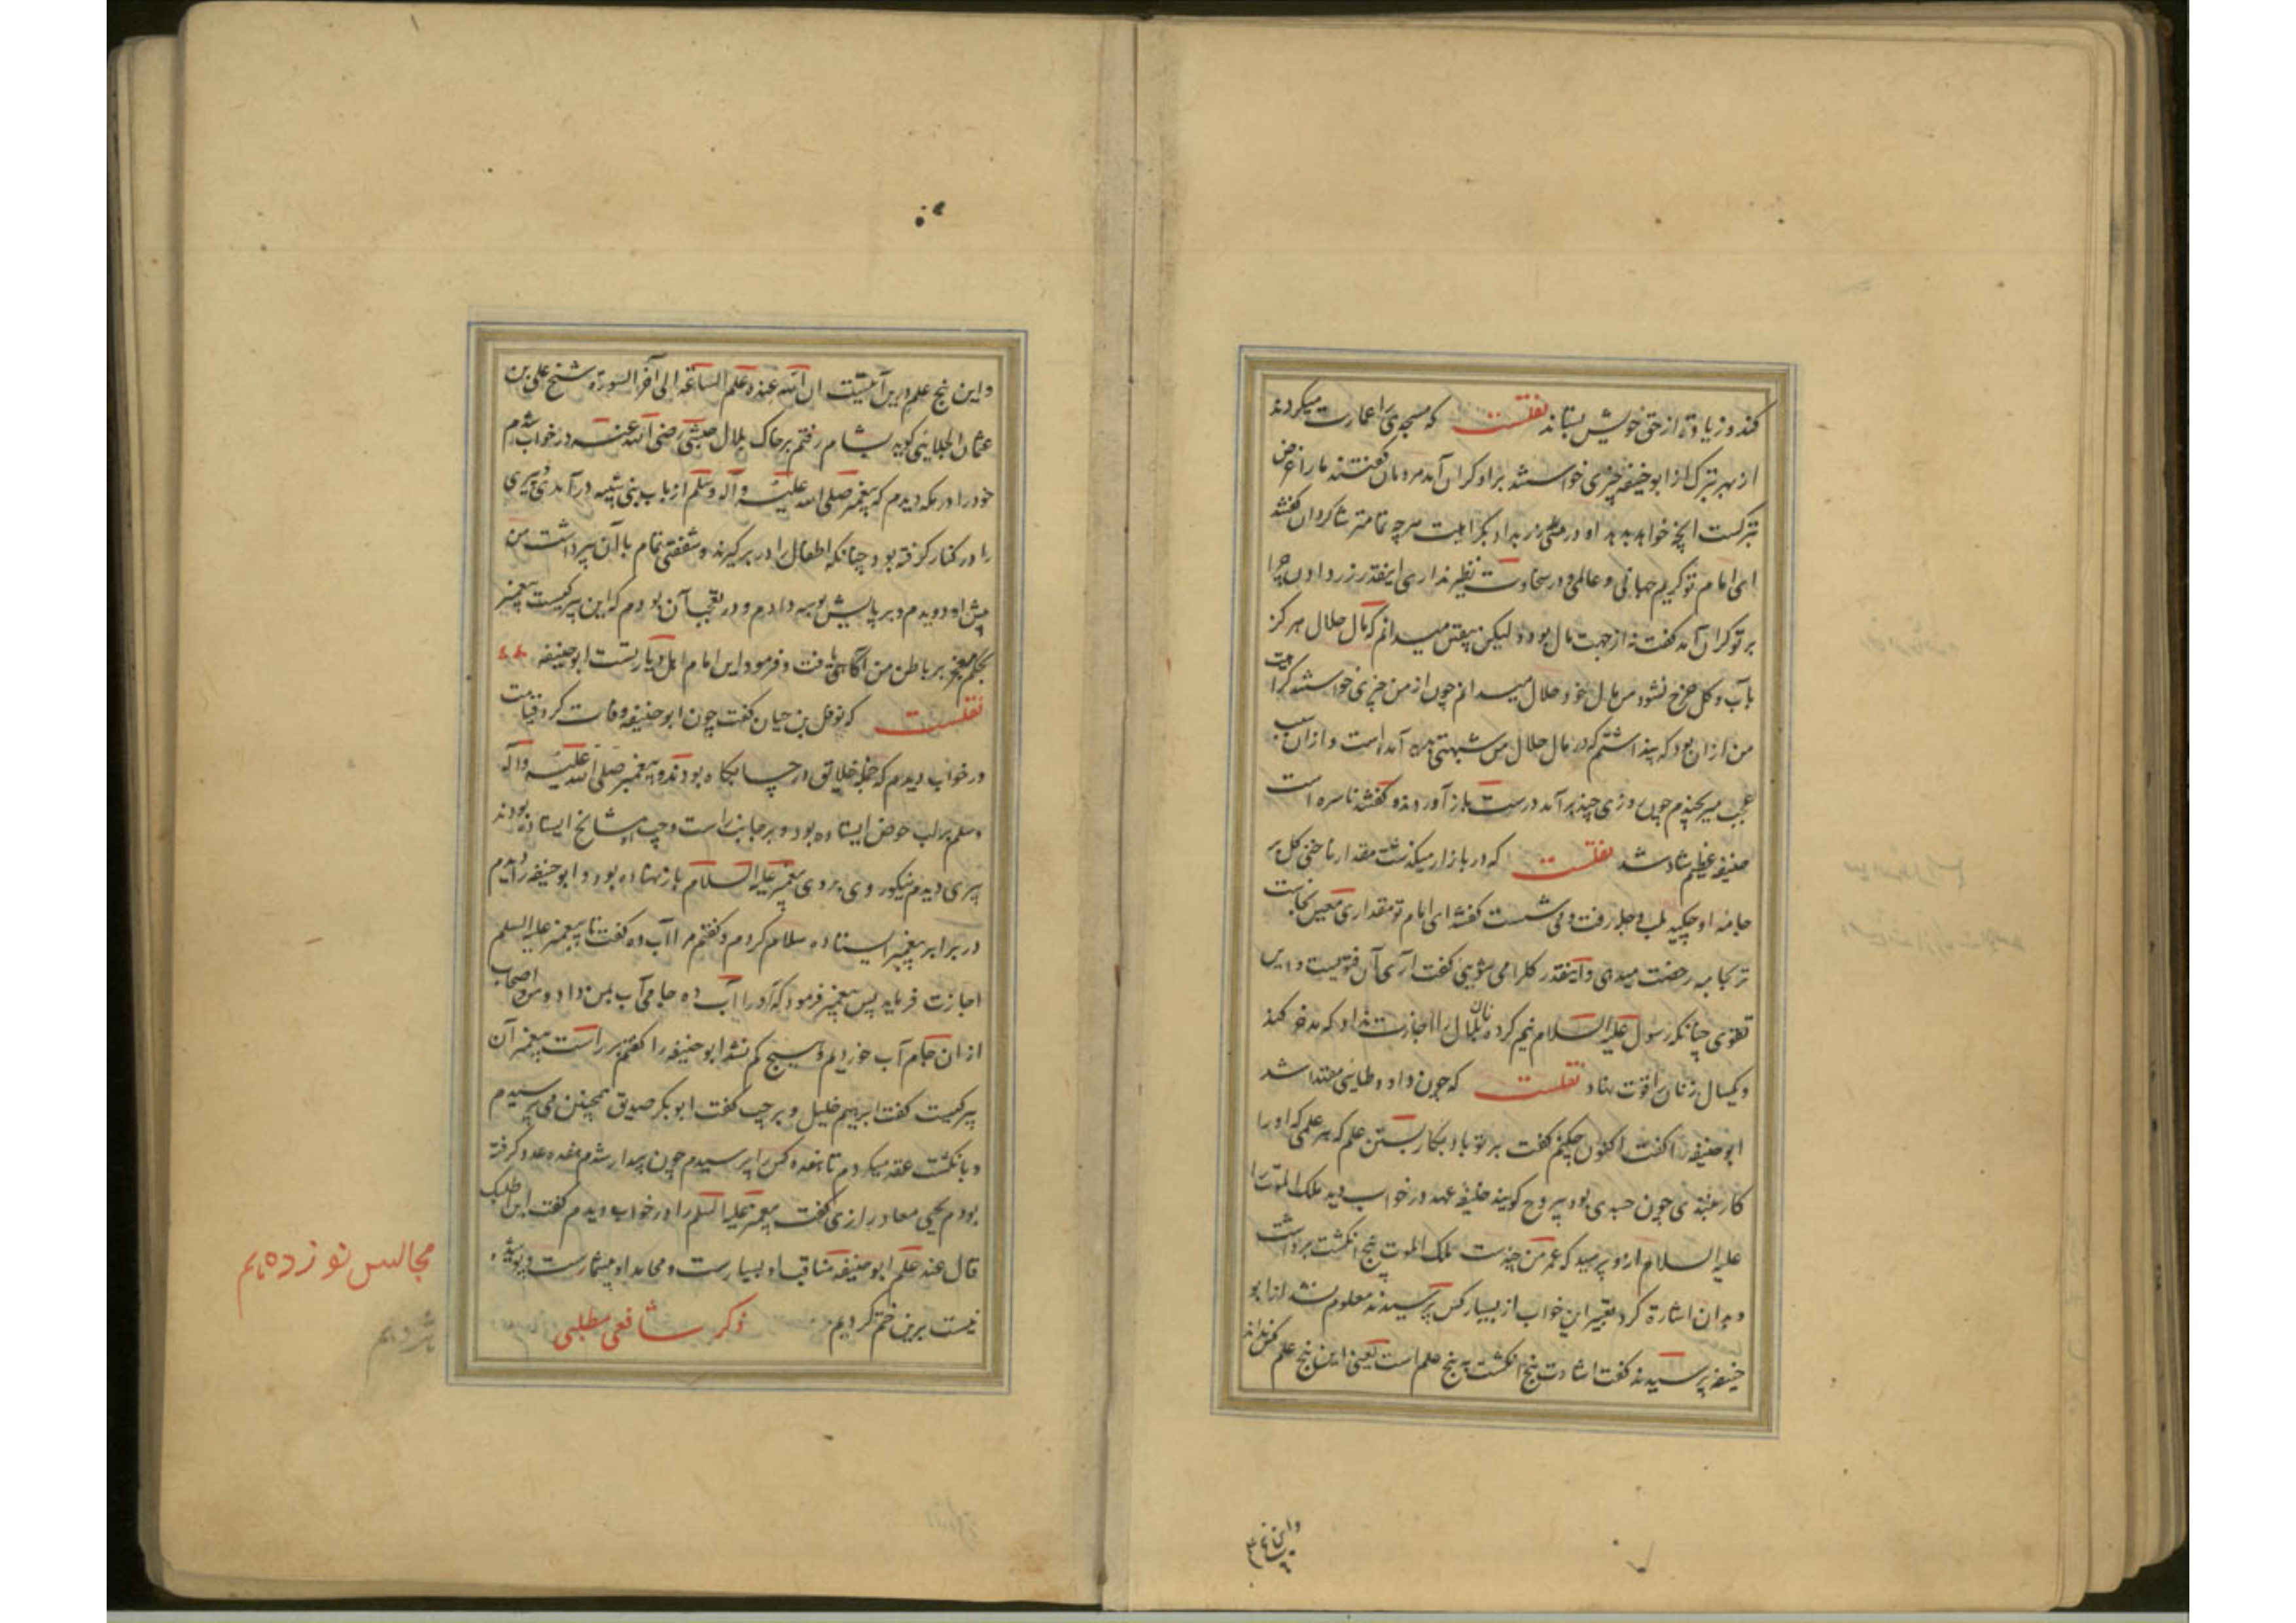 کند و زیادة از حق خویش بستاند نقلست که مسجدی را عمارت میکردند
از بهر تبرک از ابوحنیفه چیزی خواستند بر او گران آمد مردمان گفتند ما را غرض
تبرکست آنچه خواهد بدهد او درستی زر بداد بکراهیت هرچه تمامتر شاگردان گفتند
ای امام تو کریم جهانی و عالمی و در سخاوت نظیر نداری اینقدر زر دادن چرا
بر تو گران آمد گفت نه از جهت مال بود ولیکن یقین میدانم که مال حلال هرگز
بآب و گل خرج نشود من مال خود حلال میدانم چون از من چیزی خواستند کراهیت
من از آن بود که پنداشتم که در مال حلال من شبهتی پدید آمده است و از آن سبب
عجب میرنجیدم چون روزی چند برآمد درست باز آوردند و گفتند ناسره است
حنیفه عظیم شاد شد نقلست که در بازار میگذشت مقدار ناخنی گل بر
جامه او چکید بلب دجله رفت و می شست گفتند ای امام تو مقداری معین نجاست
بر جامه رخصت میدهی و اینقدر گل را می شویی گفت آری آن فتویست و این
تقوی چنانکه رسول علیه السلام نیم گرده نان بلال را اجازت نداد که مدخر کند
و یکسال زنان را قوت نهاد نقلست که چون داود طایی مقتدا شد
ابوحنیفه را گفت اکنون چکنم گفت بر تو باد بکار بستن علم که هر علمی که او را
کار نبندی چون جسدی بود بی روح گویند خلیفه عهد در خواب دید ملک الموت را
علیه السلام ازو پرسید که عمر من چندست ملک الموت پنج انگشت برداشت
و بدان اشارة کرد تعبیر این خواب از بسیار کس پرسیدند معلوم نشد از ابو
حنیفه پرسیدند گفت اشارت پنج انگشت به پنج علم است یعنی این پنج علم کس نداند
و این پنج
و این پنج علم درین آیتست ان الله عنده علم الساعة الی آخر السورة شیخ علی بن
عثمان الجلابی گوید بشام رفتم بر خاک بلال حبشی رضی الله عنه در خواب شدم
خود را در مکه دیدم که پیغمبر صلی الله علیه و آله و سلم از باب بنی شیبه درآمدی و پیری
را در کنار گرفته بود چنانکه اطفال را در بر گیرند و شفقتی تمام با آن پیر داشت من
پیش او دویدم و بر پایش بوسه دادم و در تعجب آن بودم که این پیر کیست پیغمبر
بحکم معجز بر باطن من آگاهی یافت و فرمود این امام اهل دیار تست ابوحنیفه
نقلست که نوفل بن حیان گفت چون ابوحنیفه وفات کرد قیامت
در خواب دیدم که جمله خلایق در حسابگاه بودند و پیغمبر صلی الله علیه و آله
و سلم بر لب حوض ایستاده بود و بر جانب راست و چپ او مشایخ ایستاده بودند
پیری دیدم نیکوروی بر روی پیغمبر علیه السلام باز نهاده بود و ابوحنیفه را دیدم
در برابر پیغمبر ایستاده سلام کردم و گفتم مرا آب ده گفت تا پیغمبر علیه السلم
اجازت فرماید پس پیغمبر فرمود که او را آب ده جامی آب بمن داد و من و اصحاب
از آن جام آب خوردیم و هیچ کم نشد ابوحنیفه را گفتم بر راست پیغمبر آن
پیر کیست گفت ابرهیم خلیل و بر چپ گفت ابوبکر صدیق همچنین می پرسیدم
و بانگشت عقد میکردم تا هفده کس را پرسیدم چون بیدار شدم هفده عدد گرفته
بودم یحیی معاد رازی گفت پیغمبر علیه السلم را در خواب دیدم گفت این اطلبک
قال عند علم ابوحنیفه مناقب او بسیارست و محامد او بیشمارست و پوشیده
نیست برین ختم کردیم ذکر شافعی مطلبی
مجالس نوزدهم